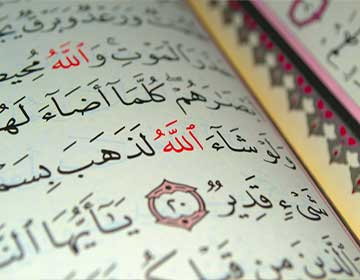 وَرَعْدٌ وَبَرْقٌ
ٱلْمَوْتِ ۚ وَٱللَّهُ مُحِيطٌ
أَبْصَٰرَهُمْ ۖ كُلَّمَآ أَضَآءَ لَهُم
وَلَوْ شَآءَ ٱللَّهُ لَذَهَبَ بِسَمْ
شَىْءٍ قَدِيرٌ ٢٠ يَٰٓأَيُّهَا ٱلنَّ
مِن قَبْلِكُمْ